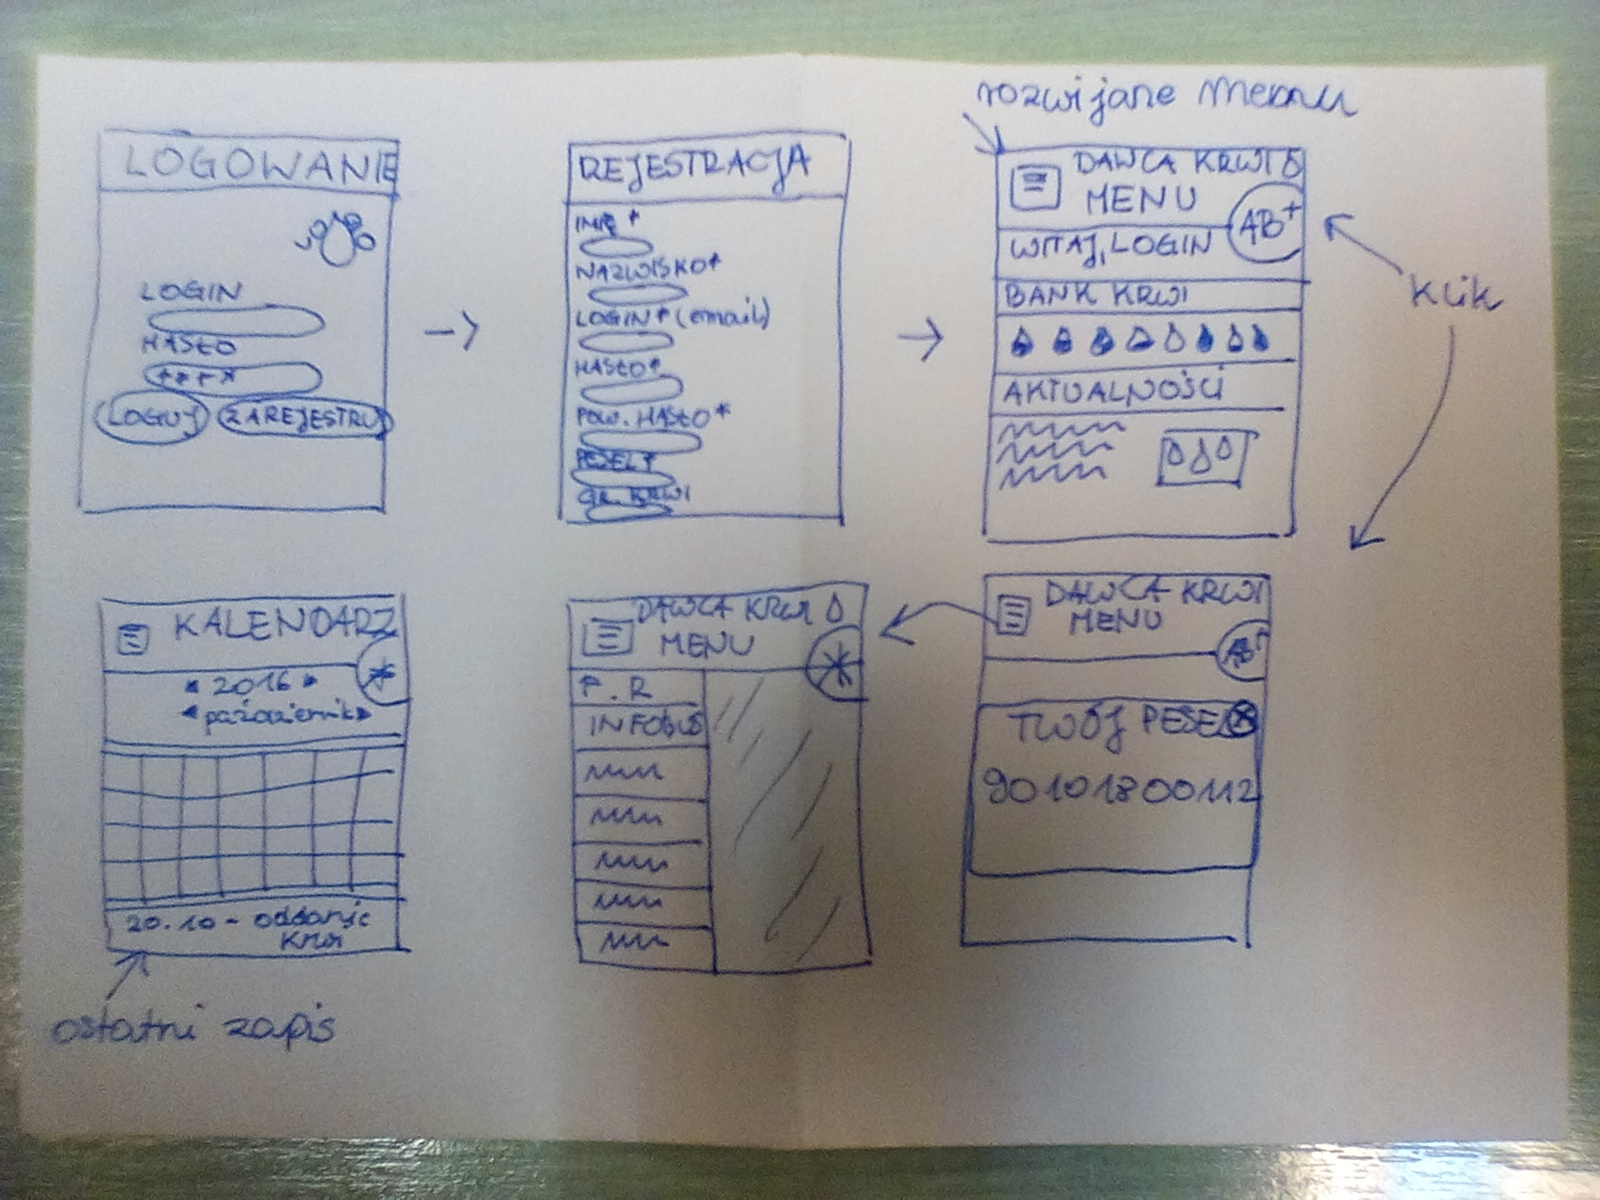 LOGOWANIE
LOGIN
HASŁO
****
LOGUJ ZAREJESTRUJ
REJESTRACJA
IMIĘ *
NAZWISKO*
LOGIN* (email)
HASŁO*
POW. HASŁO*
PESEL*
GR. KRWI
rozwijane menu
DAWCA KRWI
MENU
AB+
WITAJ, LOGIN
BANK KRWI
AKTUALNOŚCI
klik
KALENDARZ
2016
październik
20.10 - oddanie
krwi
ostatni zapis
DAWCA KRWI
MENU
P.R
INFOBUS
DAWCA KRWI
MENU
AB+
TWÓJ PESEL
90101800112